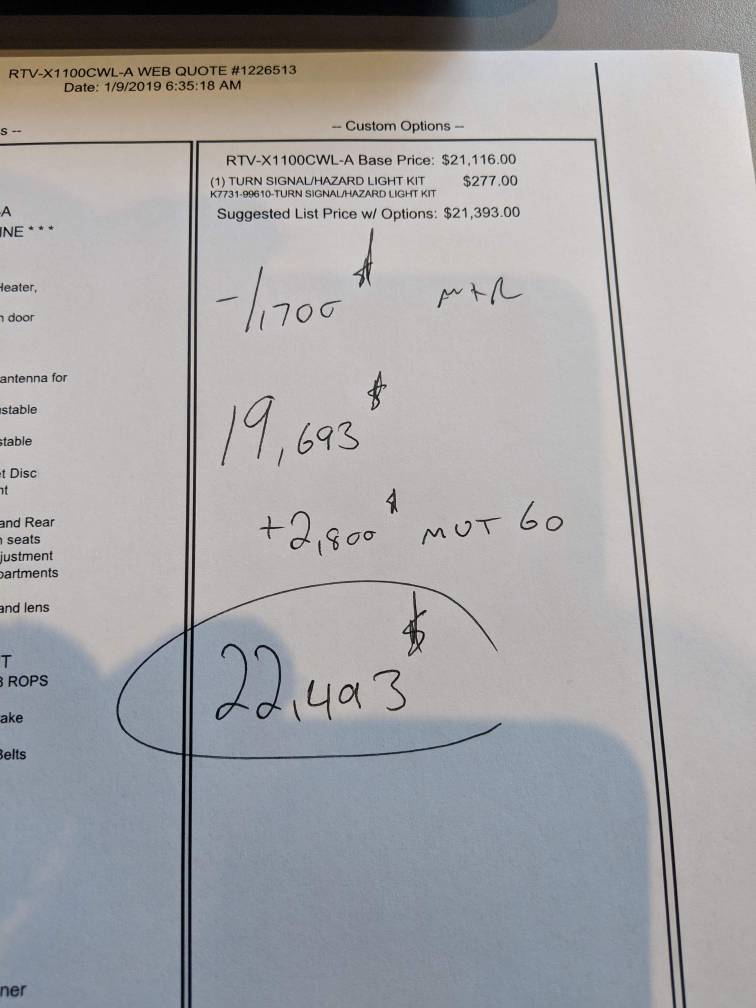 RTV-X1100CWL-A WEB QUOTE #1226513
Date: 1/9/2019 6:35:18 AM
s --
-A
INE * * *
Heater,
n door
antenna for
ustable
stable
et Disc
nt
and Rear
n seats
justment
partments
and lens
T
3 ROPS
ake
Belts
ner
-- Custom Options --
RTV-X1100CWL-A Base Price: $21,116.00
(1) TURN SIGNAL/HAZARD LIGHT KIT $277.00
K7731-99610-TURN SIGNAL/HAZARD LIGHT KIT
Suggested List Price w/ Options: $21,393.00
-1,700$
19,693$
+2,800$ MUT 60
22,493$